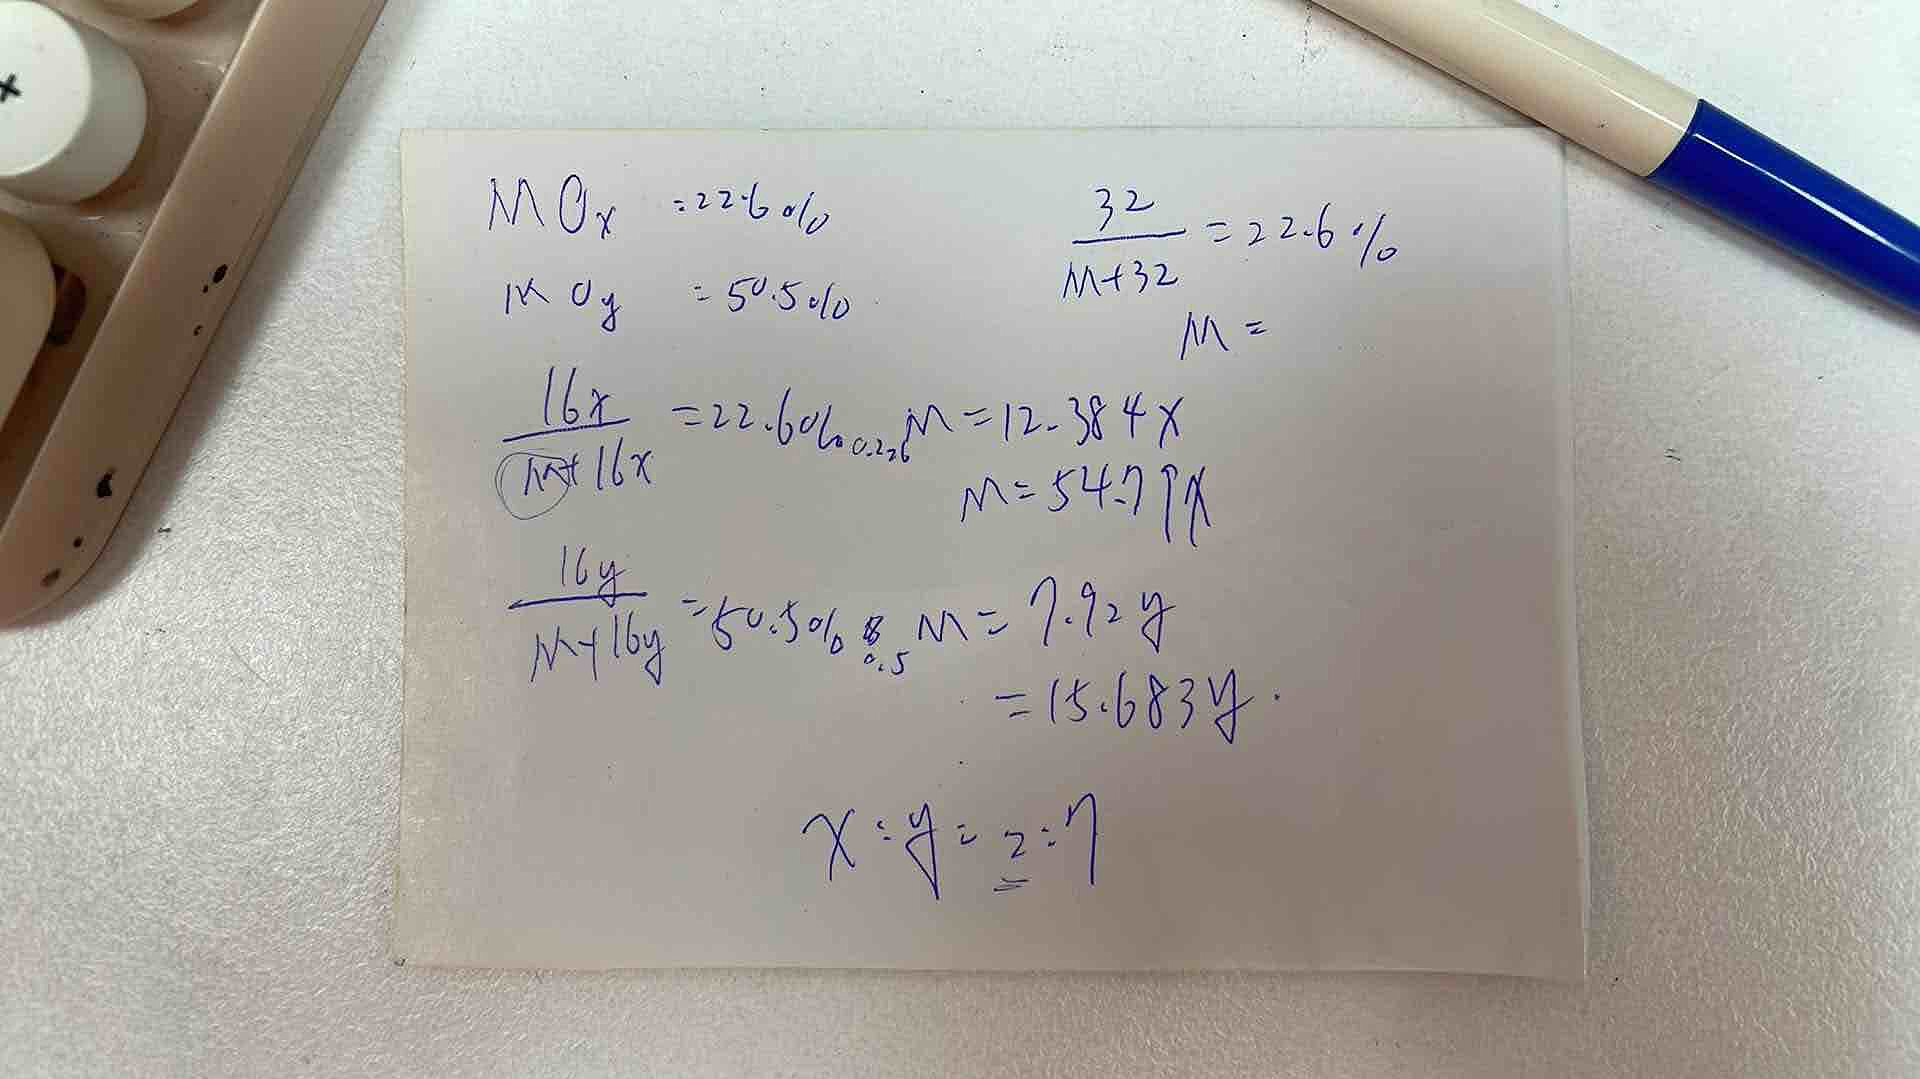 MOx =22.6%
MOy =50.5%
32/(M+32) =22.6%
M =
16x/(M+16x) =22.6% 0.226 M=12.384x
M=54.79x
16y/(M+16y) =50.5% 0.5 M=7.92y
=15.683y.
x:y=2:7
+